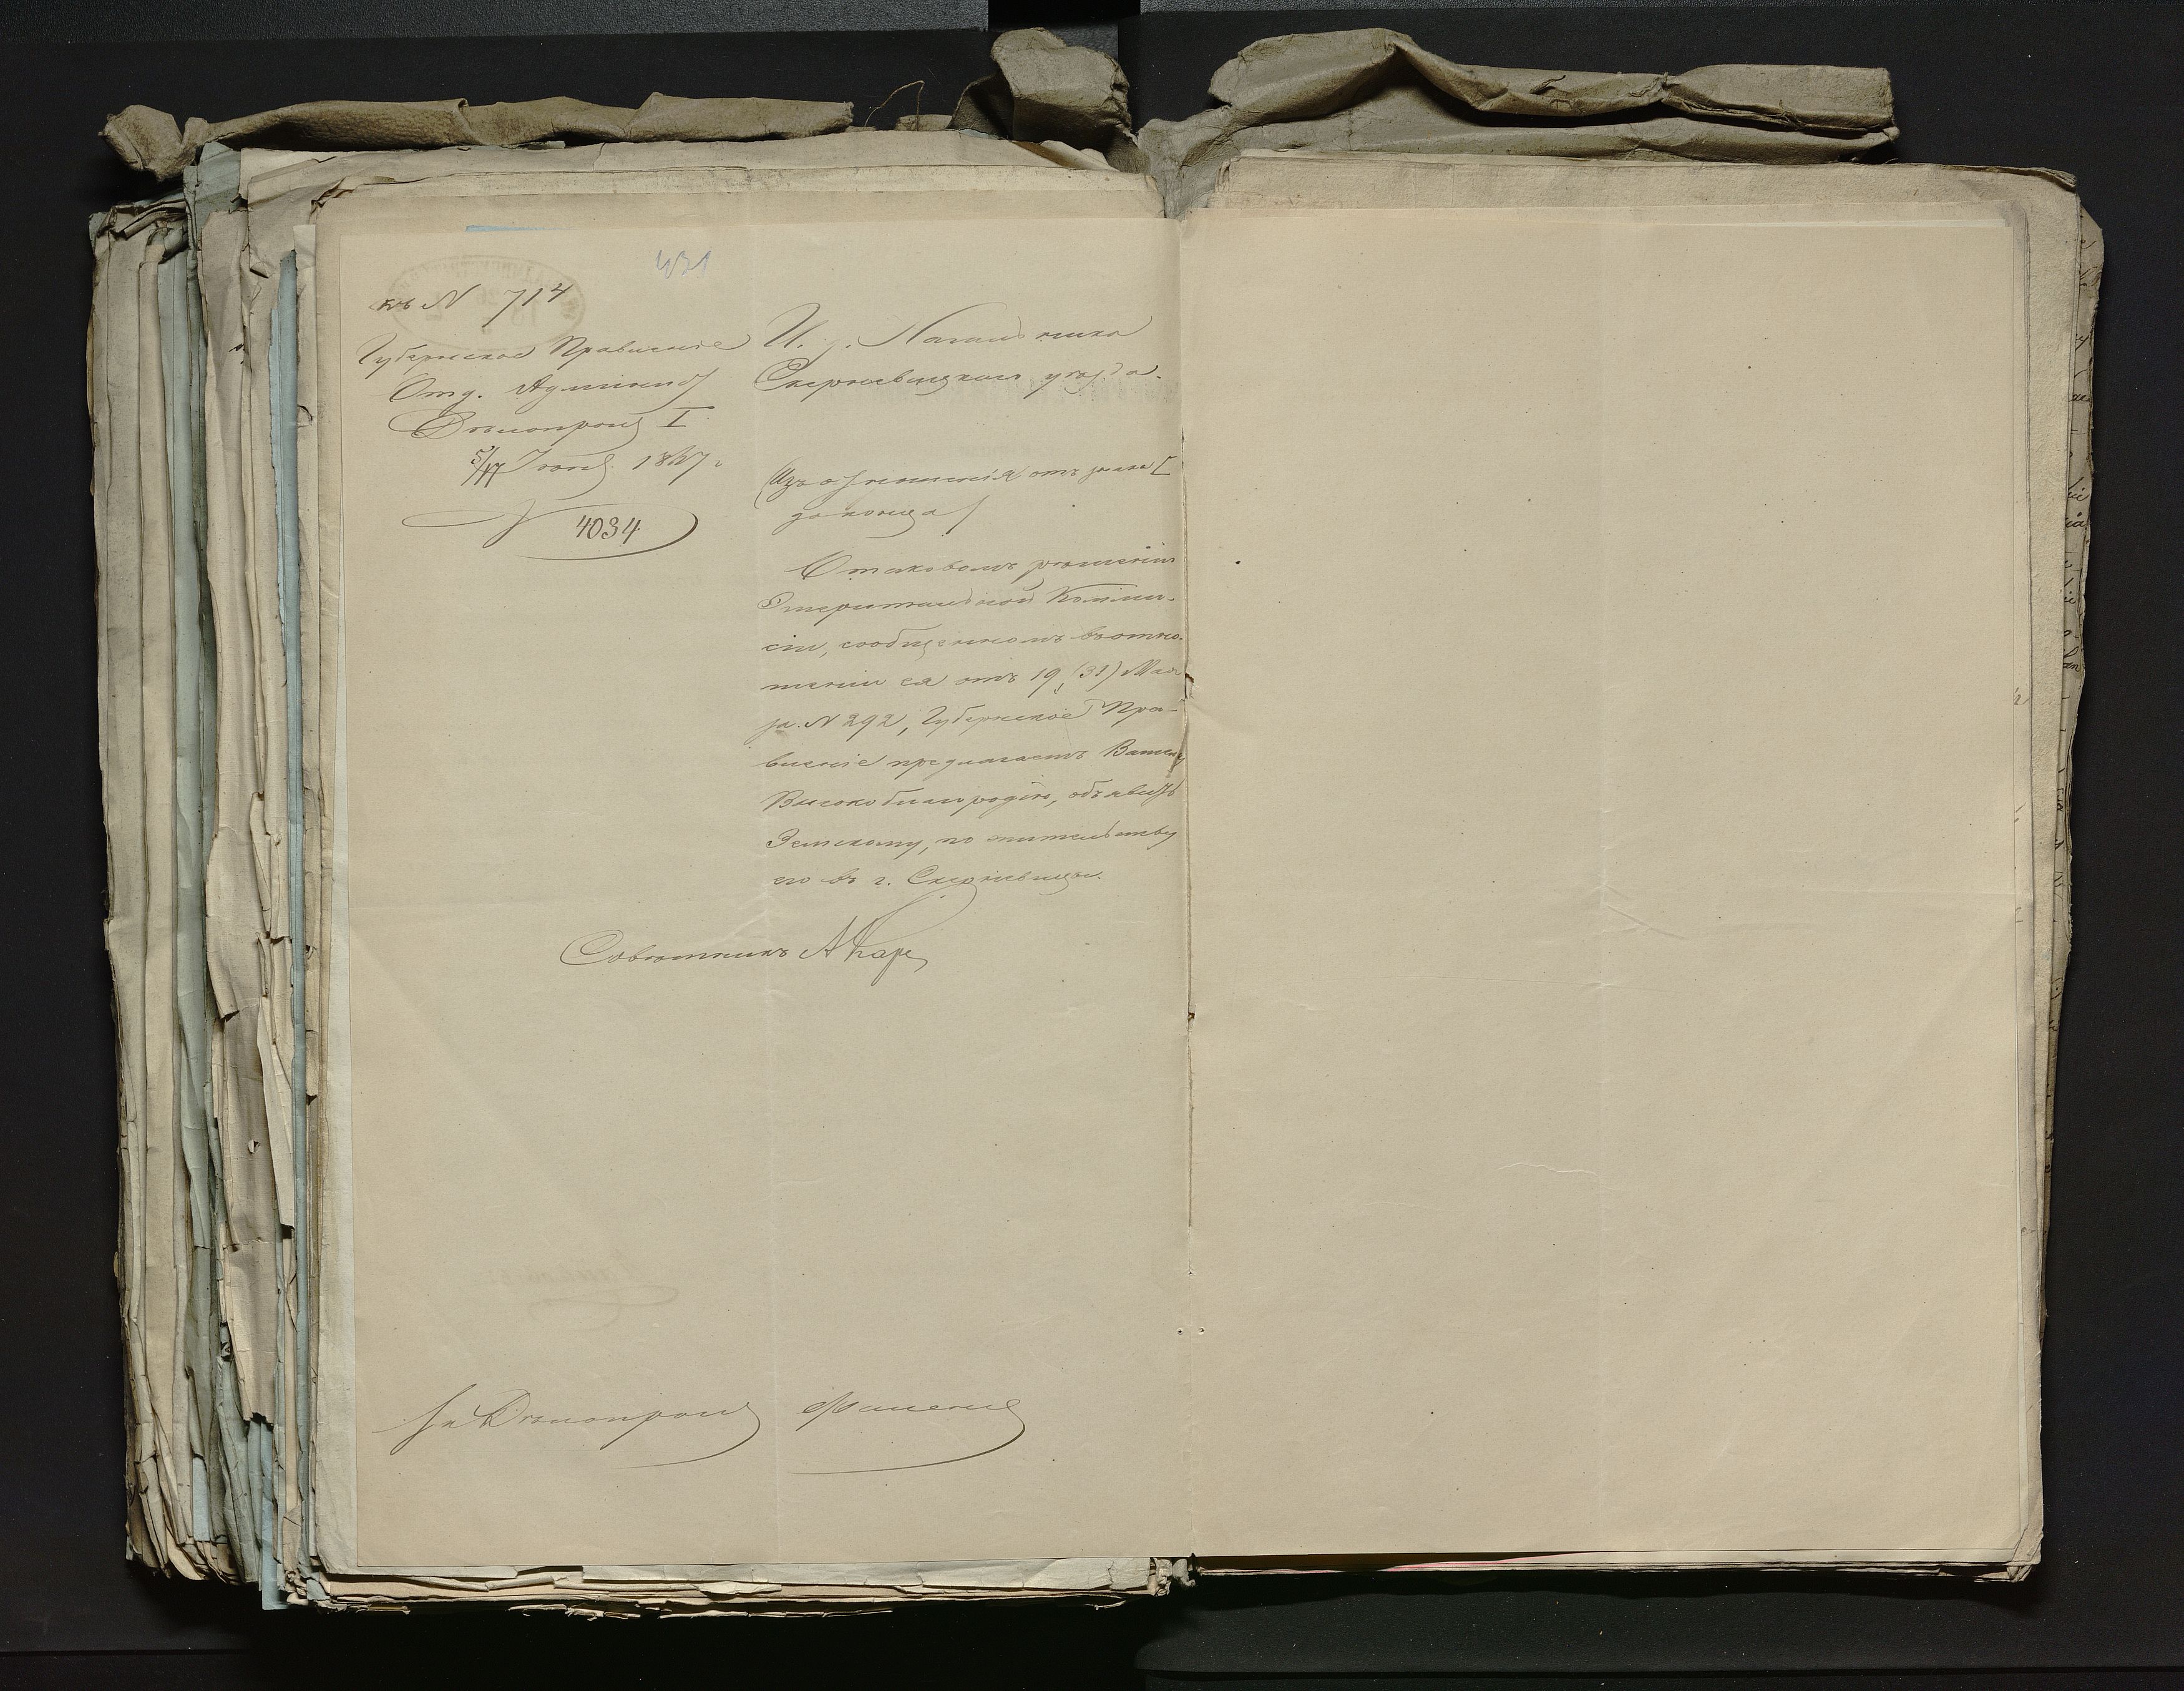 431
къ N 714
Губернское Правленіе
Отд. Админис
Дѣлопроиз I
5/17 Іюня 1867 г
N 4034
И. д. Начальника
Скерневицкаго уѣзда.
(Изъ отношенія отъ знака [
до конца)
О таковомъ рѣшеніи
Эмеритальной Комми-
сіи, сообщенномъ въ отно-
шеніи ея отъ 19 (31) Мая
за N 292, Губернское Пра-
вленіе предлагаетъ Вашему
Высокоблагородію, объявить
Земскому, по жительству
его въ г. Скерневицы.
Совѣтникъ
За Дѣлопроиз